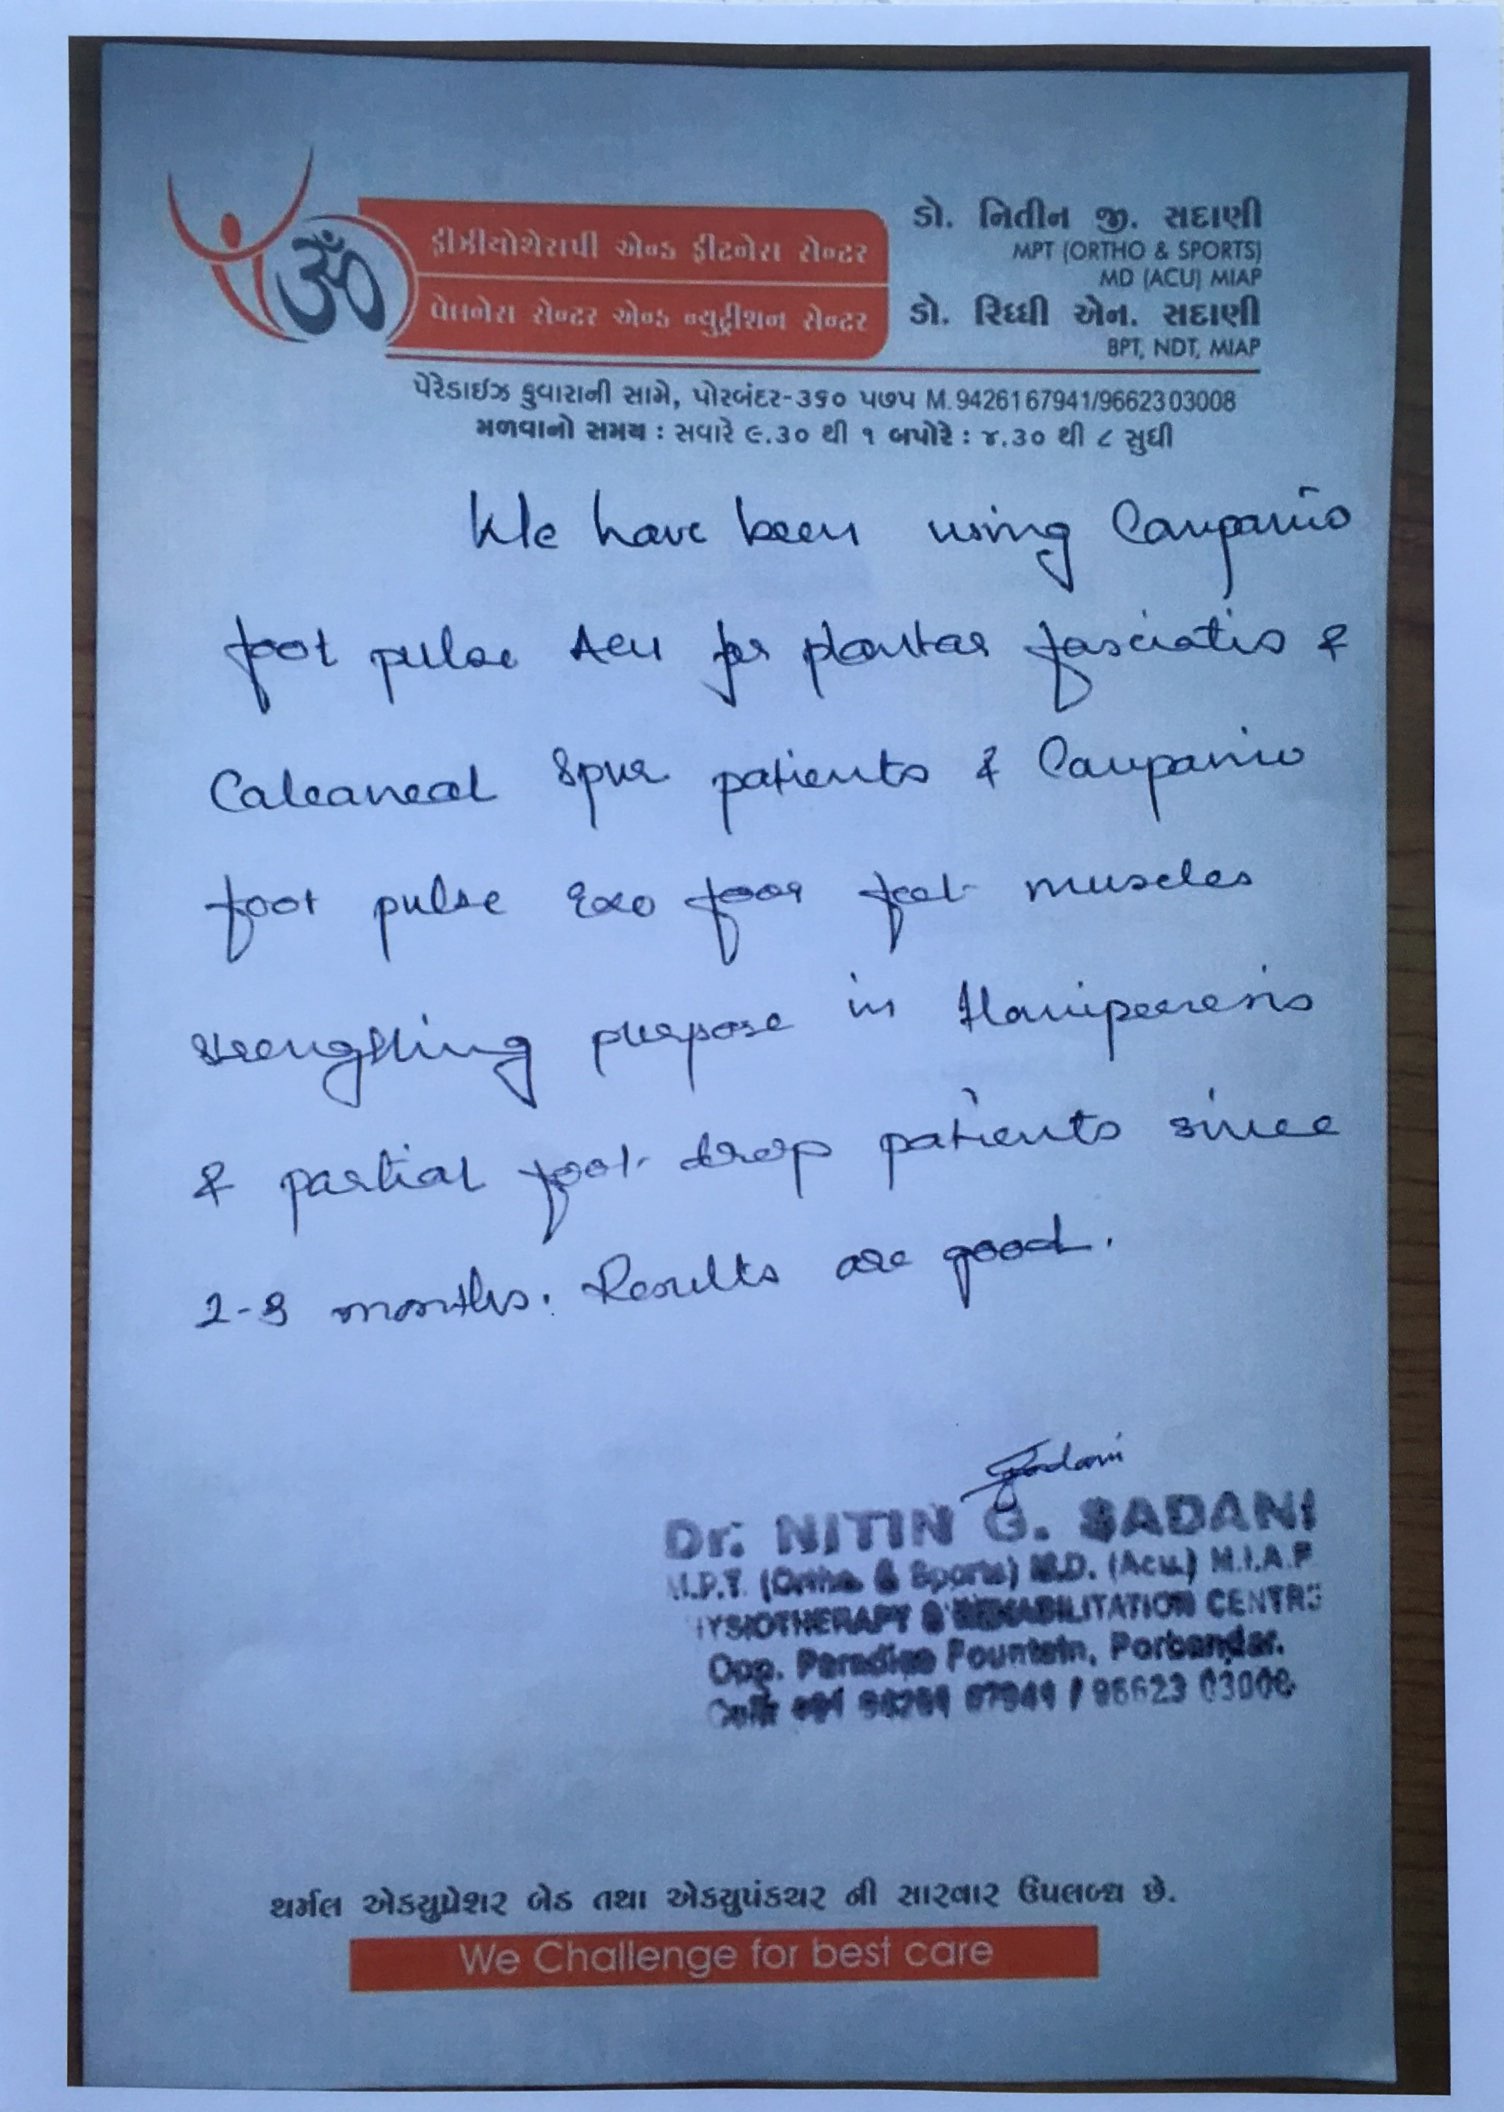 ૐ
ફીઝીયોથેરાપી એન્ડ ફીટનેસ સેન્ટર
વેલનેસ સેન્ટર એન્ડ ન્યુટ્રીશન સેન્ટર
ડો. નિતીન જી. સદાણી
MPT (ORTHO & SPORTS)
MD (ACU) MIAP
ડો. રિધ્ધી એન. સદાણી
BPT, NDT, MIAP
પેરેડાઈઝ ફુવારાની સામે, પોરબંદર-૩૬૦ ૫૭૫ M. 9426167941/9662303008
મળવાનો સમય : સવારે ૯.૩૦ થી ૧ બપોરે : ૪.૩૦ થી ૮ સુધી
We have been using Campanio
foot pulse Acu for plantar fasciatis &
Calcaneal spur patients & Campanio
foot pulse Exo foor feet muscles
strengthing purpose in
& partial foot drop patients since
2-3 months. Results are good.
Sadani
Dr. NITIN G. SADANI
M.P.T. (Ortho & Sports) M.D. (Acu.) M.I.A.P
YSIOTHERAPY & REHABILITATION CENTRE
Opp. Paradise Fountain, Porbandar.
Cell: +91 94261 67941 / 96623 03008
થર્મલ એકયુપ્રેશર બેડ તથા એકયુપંકચર ની સારવાર ઉપલબ્ધ છે.
We Challenge for best care